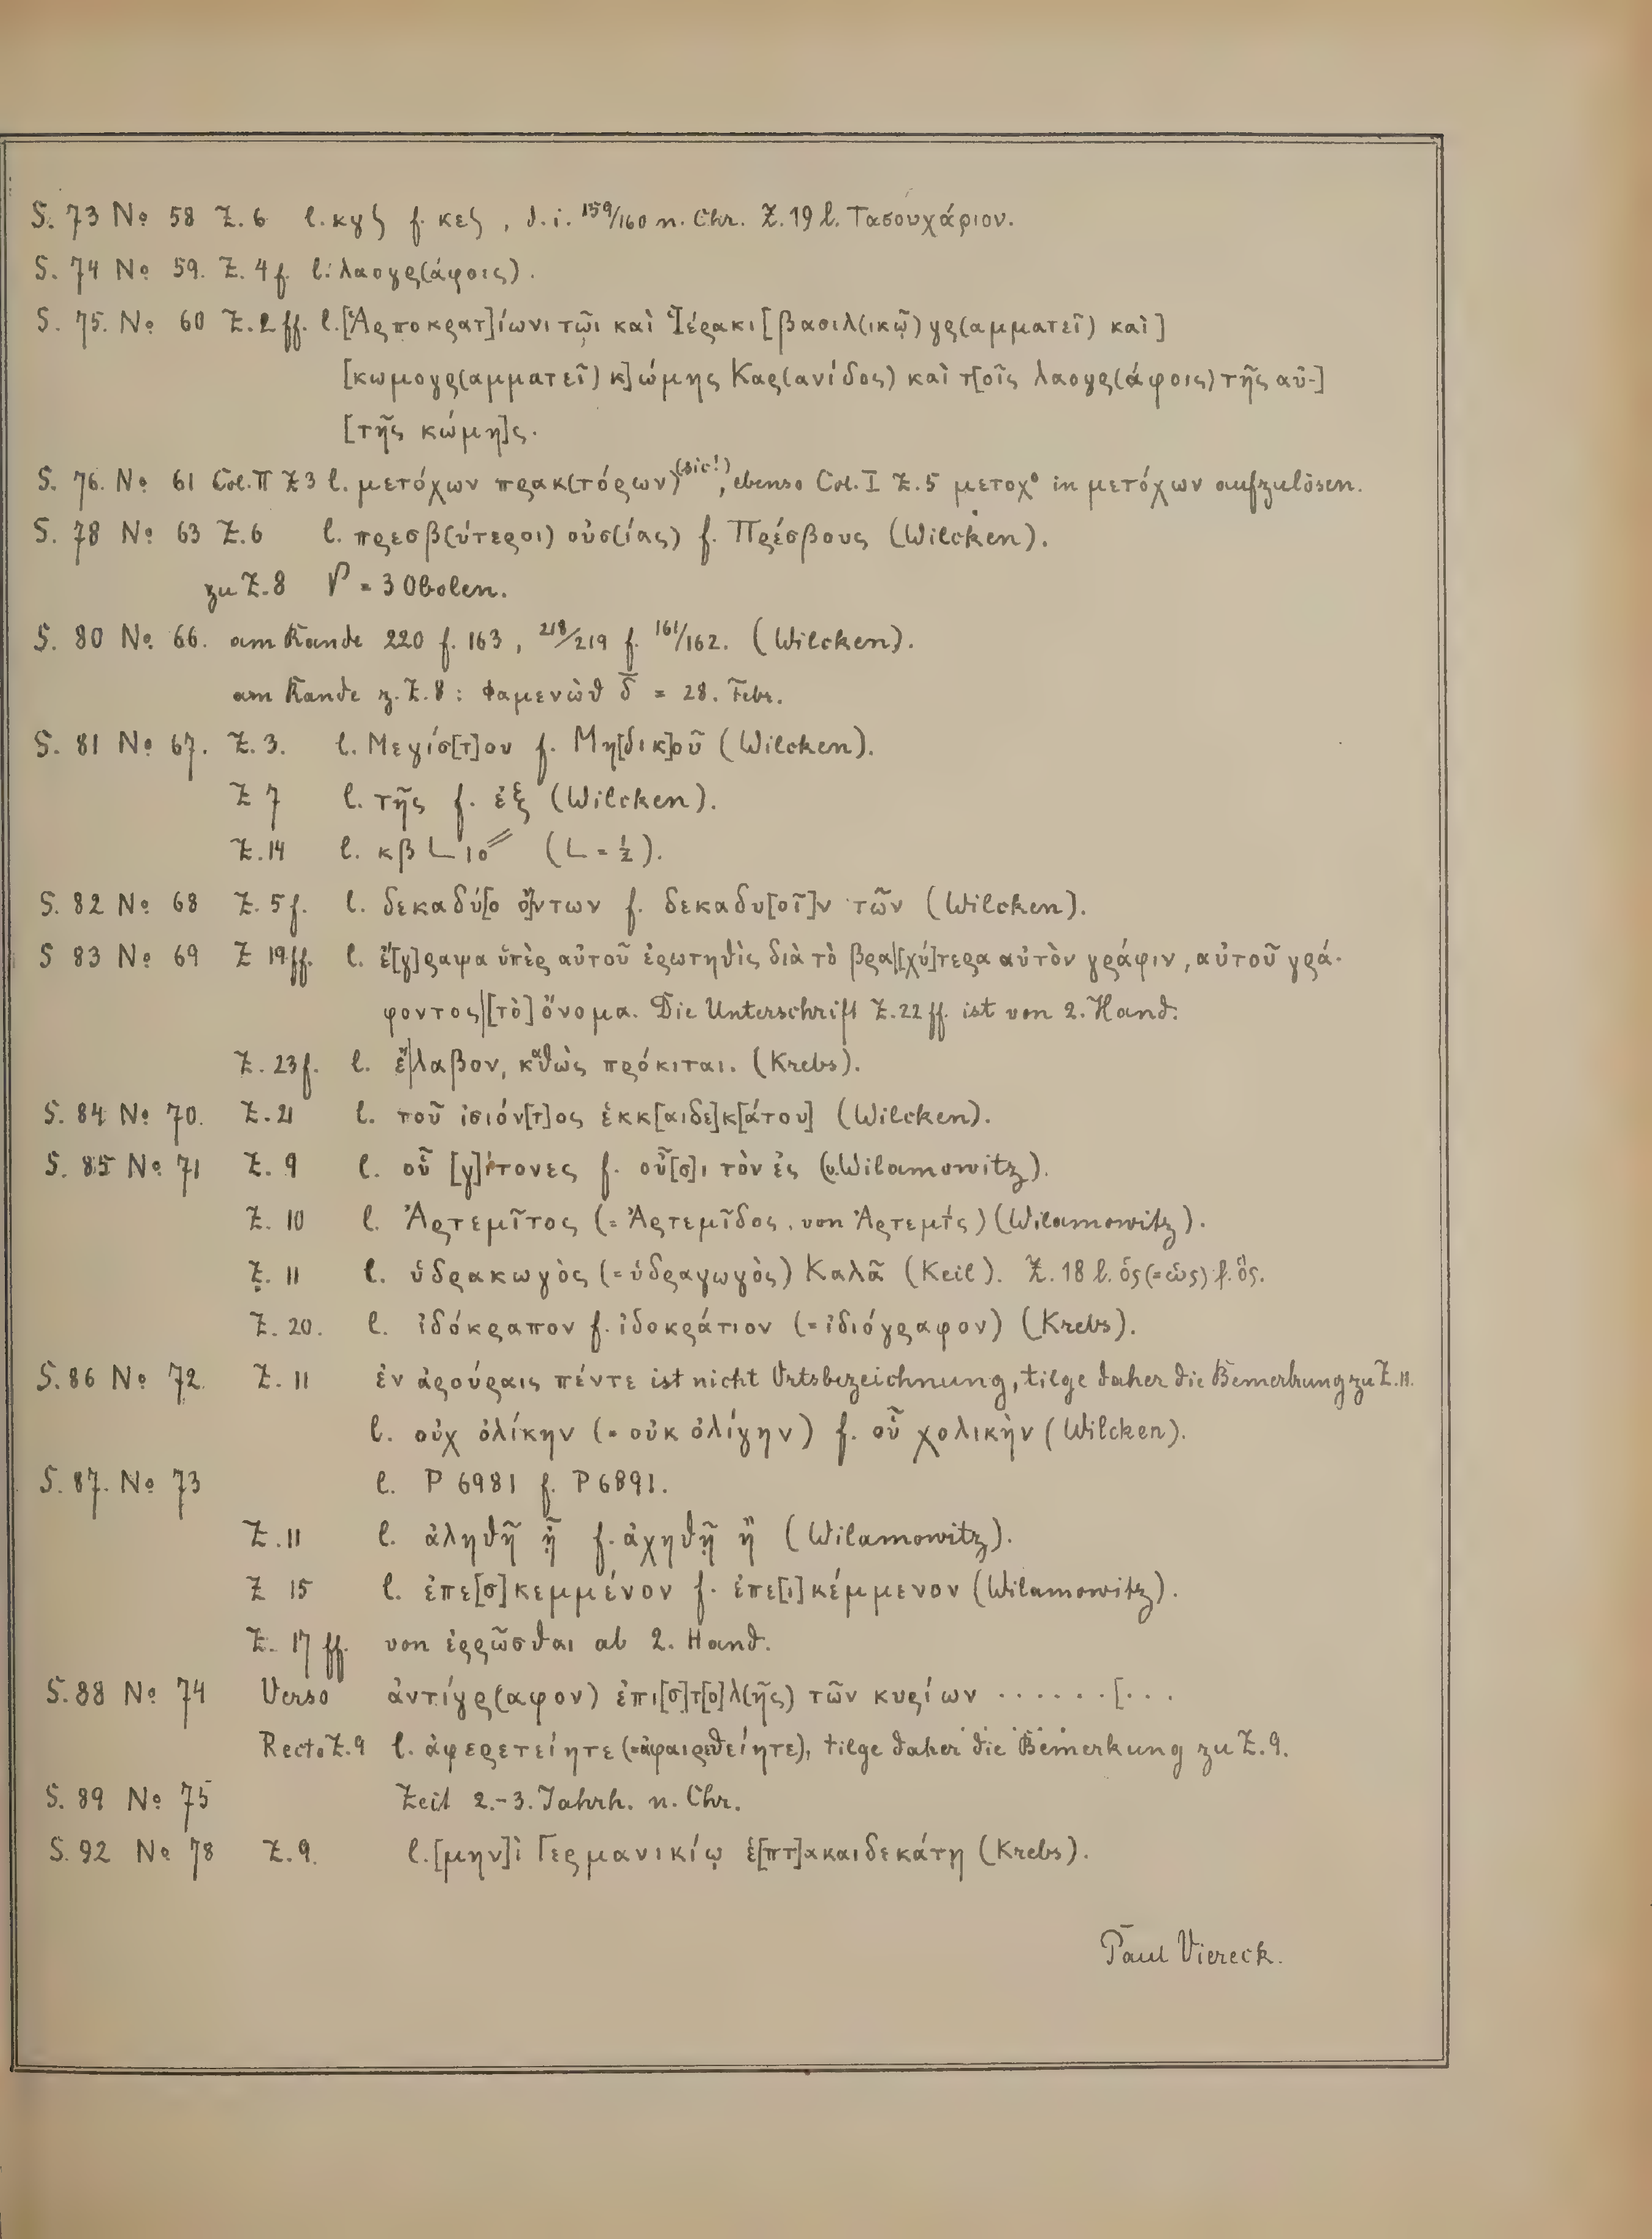 S. 73 No 58 Z. 6 l. κγϚ f. κεϚ, d. i. 159/160 n. Chr. Z. 19 l. Τασουχάριον.
S. 74 No 59. Z. 4 f. l. λαογρ(άφοις).
S. 75. No 60 Z. 2 ff. l. [Ἁρποκρατ]ίωνι τῶι καὶ Ἱέρακι [βασιλ(ικῷ) γρ(αμματεῖ) καὶ]
[κωμογρ(αμματεῖ) κ]ώμης Καρ(ανίδος) καὶ τ[οῖς λαογρ(άφοις) τῆς αὐ-]
[τῆς κώμη]ς.
S. 76. No 61 Col. II Z 3 l. μετόχων πρακ(τόρων) (sic!), ebenso Col. I Z. 5 μετοχο in μετόχων aufzulösen.
S. 78 No 63 Z. 6 l. πρεσβ(ύτεροι) οὐσ(ίας) f. Πρέσβους (Wilcken).
zu Z. 8 = 3 Obolen.
S. 80 No 66. am Rande 220 f. 163, 218/219 f. 161/162. (Wilcken).
am Rande z. Z. 8: Φαμενὼθ δ̅ = 28. Febr.
S. 81 No 67. Z. 3. l. Μεγίσ[τ]ου f. Μη[δικ]οῦ (Wilcken).
Z 7 l. τῆς f. ἐξ (Wilcken).
Z. 14 l. κβ L ιο″ (L = ½).
S. 82 No 68 Z. 5 f. l. δεκαδύ[ο ὄ]ντων f. δεκαδυ[οῖ]ν τῶν (Wilcken).
S 83 No 69 Z 19 ff. l. ἔ[γ]ραψα ὑπὲρ αὐτοῦ ἐρωτηθὶς διὰ τὸ βρα|[χύ]τερα αὐτὸν γράφιν, αὐτοῦ γρά-
φοντος|[τὸ] ὄνομα. Die Unterschrift Z. 22 ff. ist von 2. Hand.
Z. 23 f. l. ἔ|λαβον, καθὼς πρόκιται. (Krebs).
S. 84 No 70. Z. 21 l. τοῦ ἰσιόν[τ]ος ἑκκ[αιδε]κ[άτου] (Wilcken).
S. 85 No 71 Z. 9 l. οὗ [γ]ίτονες f. οὗ[σ]ι τὸν ἐς (v. Wilamowitz).
Z. 10 l. Ἀρτεμῖτος (= Ἀρτεμῖδος, von Ἀρτεμίς) (Wilamowitz).
Z. 11 l. ὑδρακωγὸς (= ὑδραγωγὸς) Καλᾶ (Keil). Z. 18 l. ὁς (= ὡς) f. ὃς.
Z. 20. l. ἰδόκραπον f. ἰδοκράτιον (= ἰδιόγραφον) (Krebs).
S. 86 No 72. Z. 11 ἐν ἀρούραις πέντε ist nicht Ortsbezeichnung, tilge daher die Bemerkung zu Z. 11.
l. οὐχ ὀλίκην (= οὐκ ὀλίγην) f. οὗ χολικὴν (Wilcken).
S. 87. No 73 l. P 6981 f. P 6891.
Z. 11 l. ἀληθῆ ᾖ f. ἀχηθῇ ἢ (Wilamowitz).
Z 15 l. ἐπε[σ]κεμμένον f. ἐπε[ι]κέμμενον (Wilamowitz).
Z. 17 ff. von ἐρρῶσθαι ab 2. Hand.
S. 88 No 74 Verso ἀντίγρ(αφον) ἐπι[σ]τ[ο]λ(ῆς) τῶν κυρίων ......[...
Recto Z. 9 l. ἀφερετείητε (= ἀφαιρεθείητε), tilge daher die Bemerkung zu Z. 9.
S. 89 No 75 Zeit 2.-3. Jahrh. n. Chr.
S. 92 No 78 Z. 9. l. [μην]ὶ Γερμανικίῳ ἑ[πτ]ακαιδεκάτῃ (Krebs).
Paul Viereck.